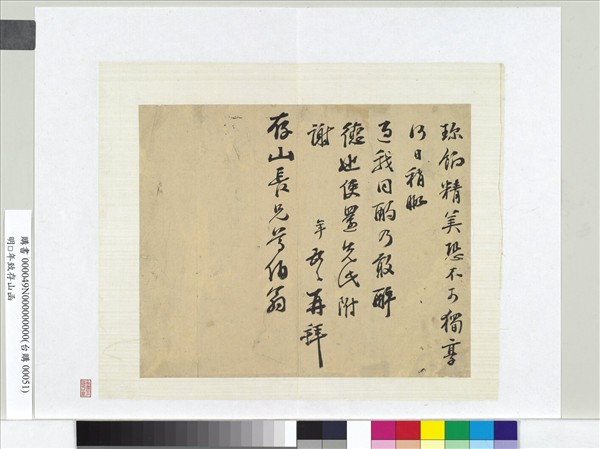 珍餉精美恐不可獨享
何日稍暇
過我同酌乃敢醉
德也使還先此附
謝
年 再拜
存山長兄 伯翁
購書 000049N000000000(台購 00051)
明□年致存山函